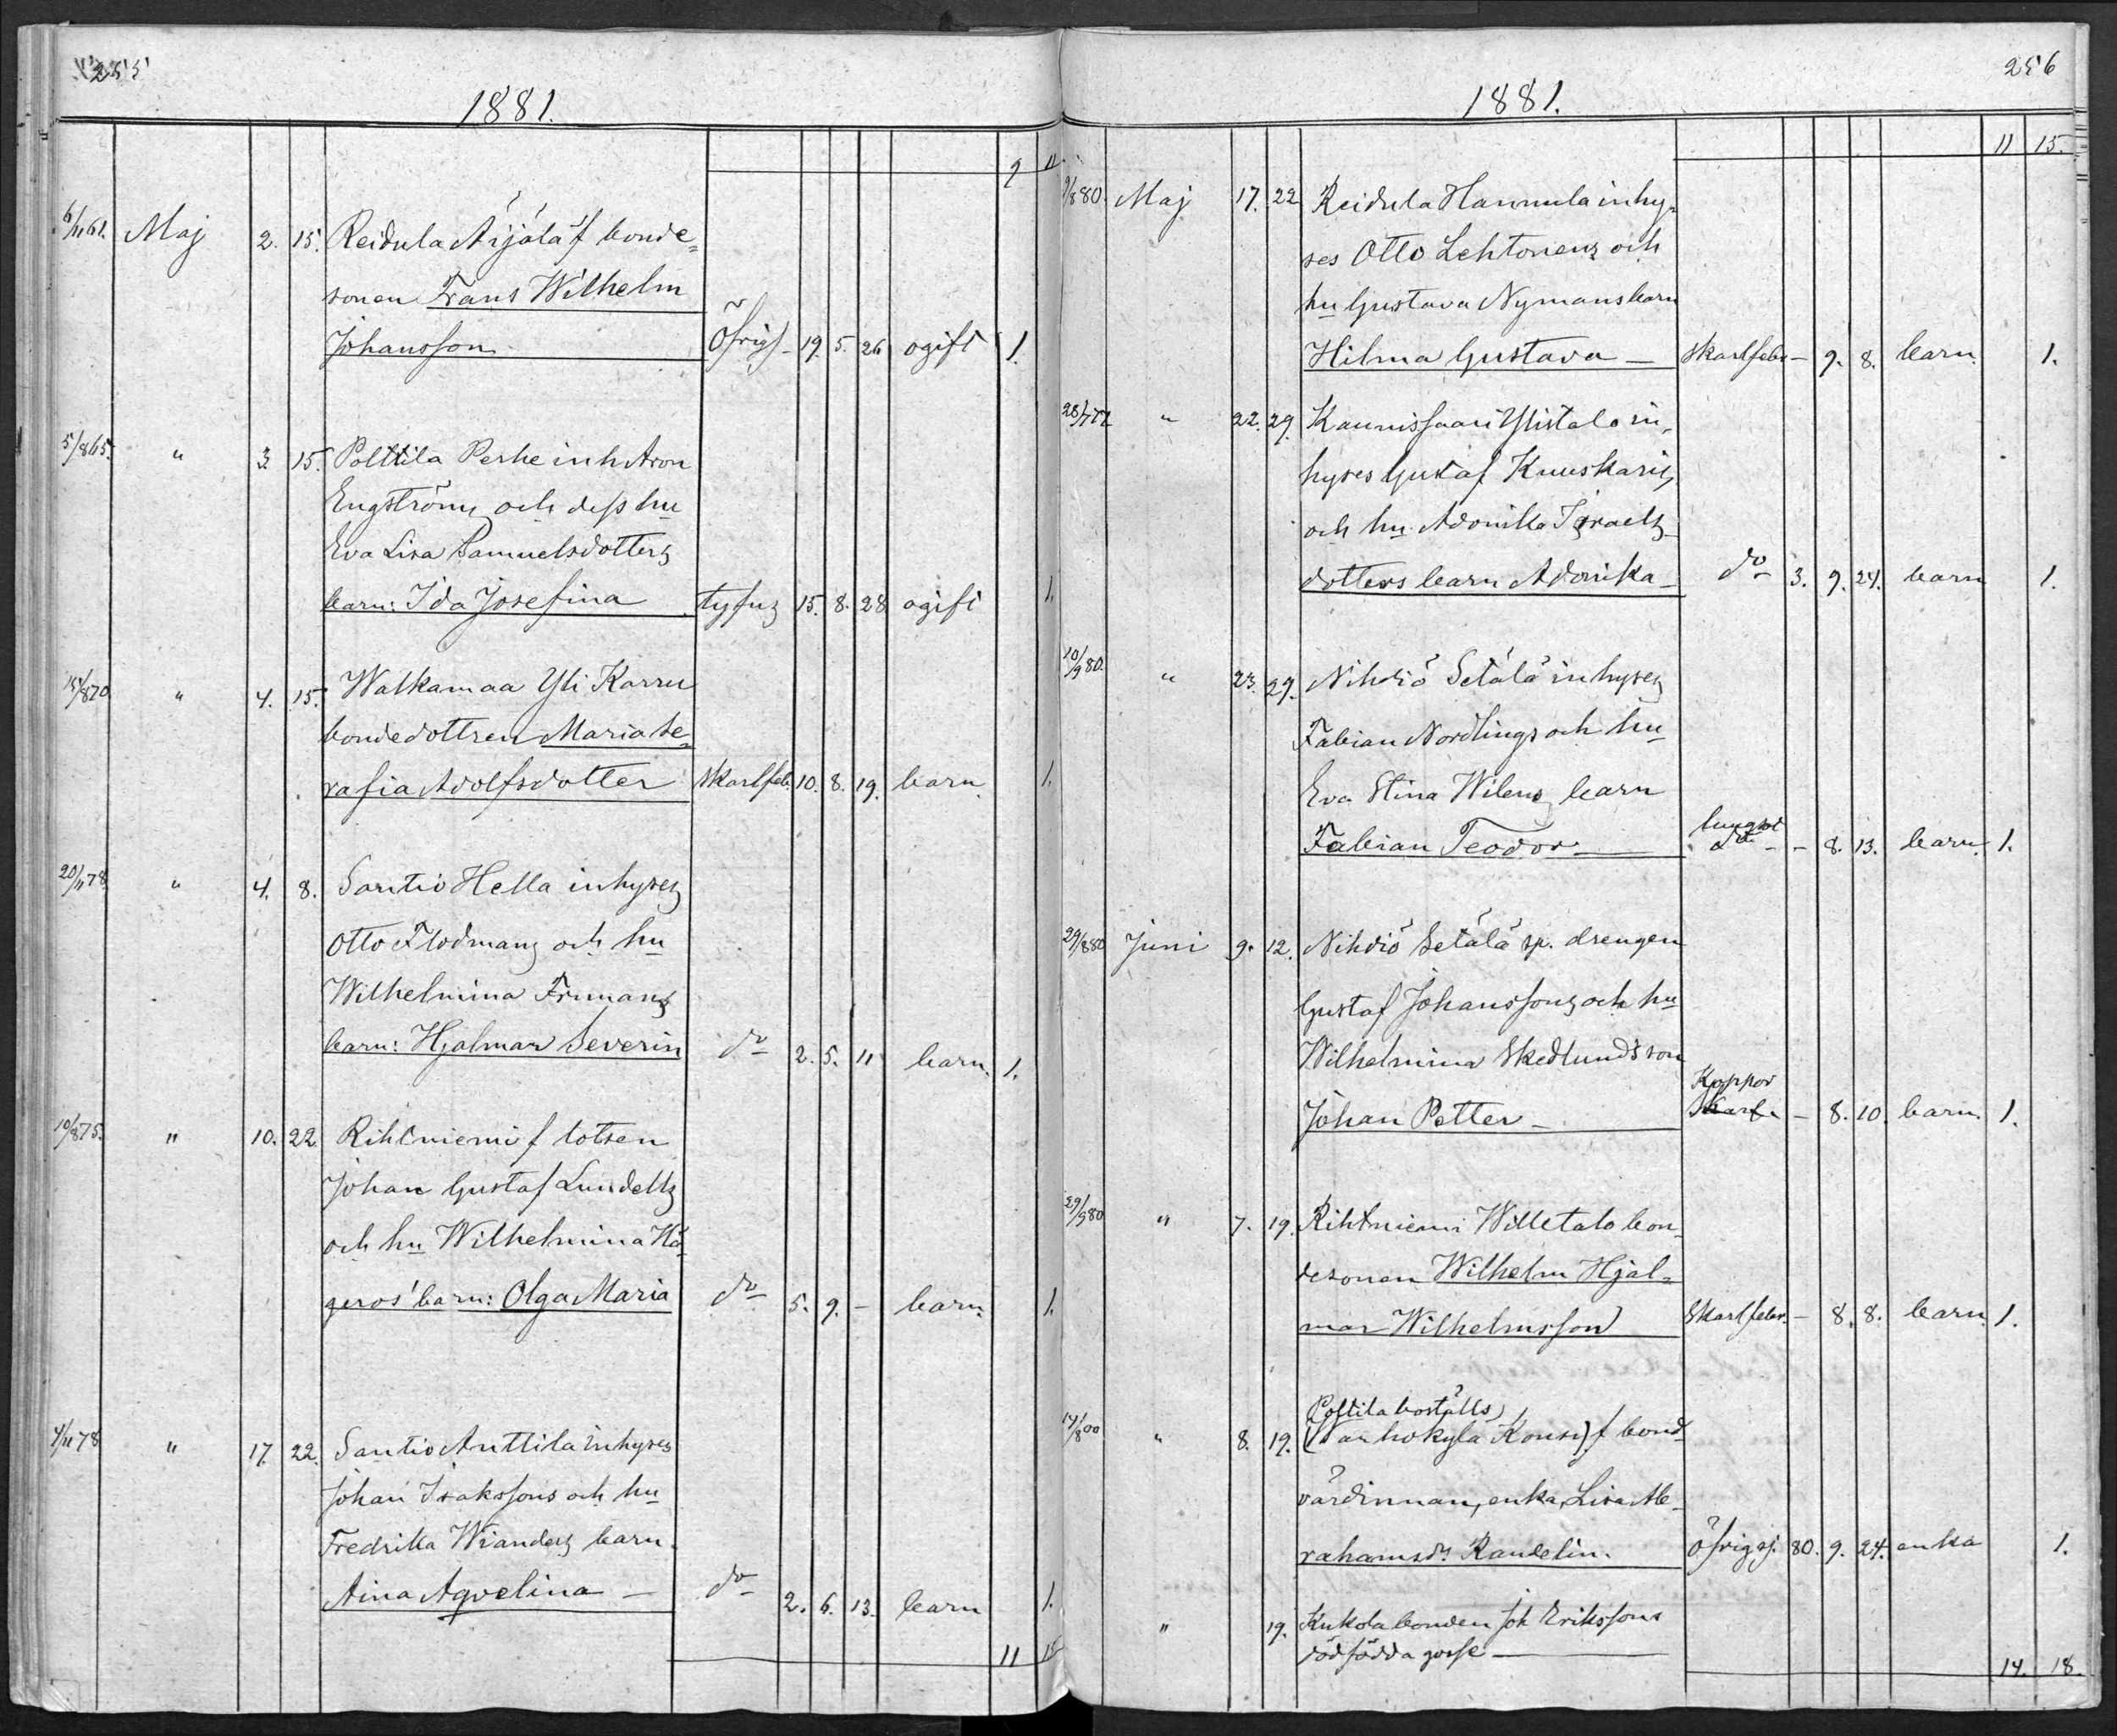 255
1881.
9 11
6/11 61. Maj 2. 15. Reidula Äijälä f bonde-
sonen Frans Wilhelm
Johansson Öfrig s 19. 5. 26 ogift 1.
5/8 65. " 3 15. Polttila Perhe inh Aron
Engströms och dess hu
Eva Lisa Samuelsdotters
barn: Ida Josefina tyfus 15. 8. 28 ogift 1.
15/8 70 " 4. 15. Walkamaa Yli Karru
bondedottren Maria Se-
rafia Adolfsdotter Skarlfeb. 10. 8. 19. barn. 1.
20/11 78 " 4. 8. Santio Hella inhyses
Otto Flodmans och hu
Wilhelmina Frumans
barn: Hjalmar Severin do 2. 5. 11 barn. 1.
10/8 75. " 10. 22. Rihtniemi f lotsen
Johan Gustaf Lundells
och hu Wilhelmina Hä-
geros' barn: Olga Maria do 5. 9. - barn. 1.
4/11 78 " 17. 22. Santio Anttila inhyses
Johan Isakssons och hu
Fredrika Wianders barn
Aina Aqvelina - do 2. 6. 13. barn 1.
11 15
256
1881.
11 15.
9/8 80. Maj 17. 22 Reidula Hannula inhy-
ses Otto Lehtonens och
hu Gustava Nymans barn
Hilma Gustava - Skarlfeber - 9. 8. barn. 1.
28/7 77 " 22. 29. Kaunissaari Ylistalo in-
hyses Gustaf Kuuskaris
och hu Adonika Israels-
dotters barn Adonika - do 3. 9. 24. barn 1.
10/9 80. " 23. 29. Nihdiö Setälä inhyses
Fabian Nordlings och hu
Eva Stina Wilens barn
Fabian Teodor lungsot do - 8. 13. barn. 1.
29/8 80 Juni 9. 12. Nihdiö Setälä sp. drengen
Gustaf Johanssons och hu
Wilhelmina Skedlunds son
Johan Petter - Koppor Skarl. - 8. 10. barn. 1.
29/9 80 " 7. 19. Rihtniemi Willetalo bon-
desonen Wilhelm Hjal-
mar Wilhelmsson Skarlfeber. - 8. 8. barn. 1.
Polttila boställs)
14/8 00 " 8. 19. (Wanhokylä Konsi) f bond-
värdinnan, enka, Lisa Ab-
rahamsdr Randelin. Öfrig sj. 80. 9. 24. enka 1.
" 19. Kukola bonden Joh Erikssons
dödfödda gosse
14. 18.